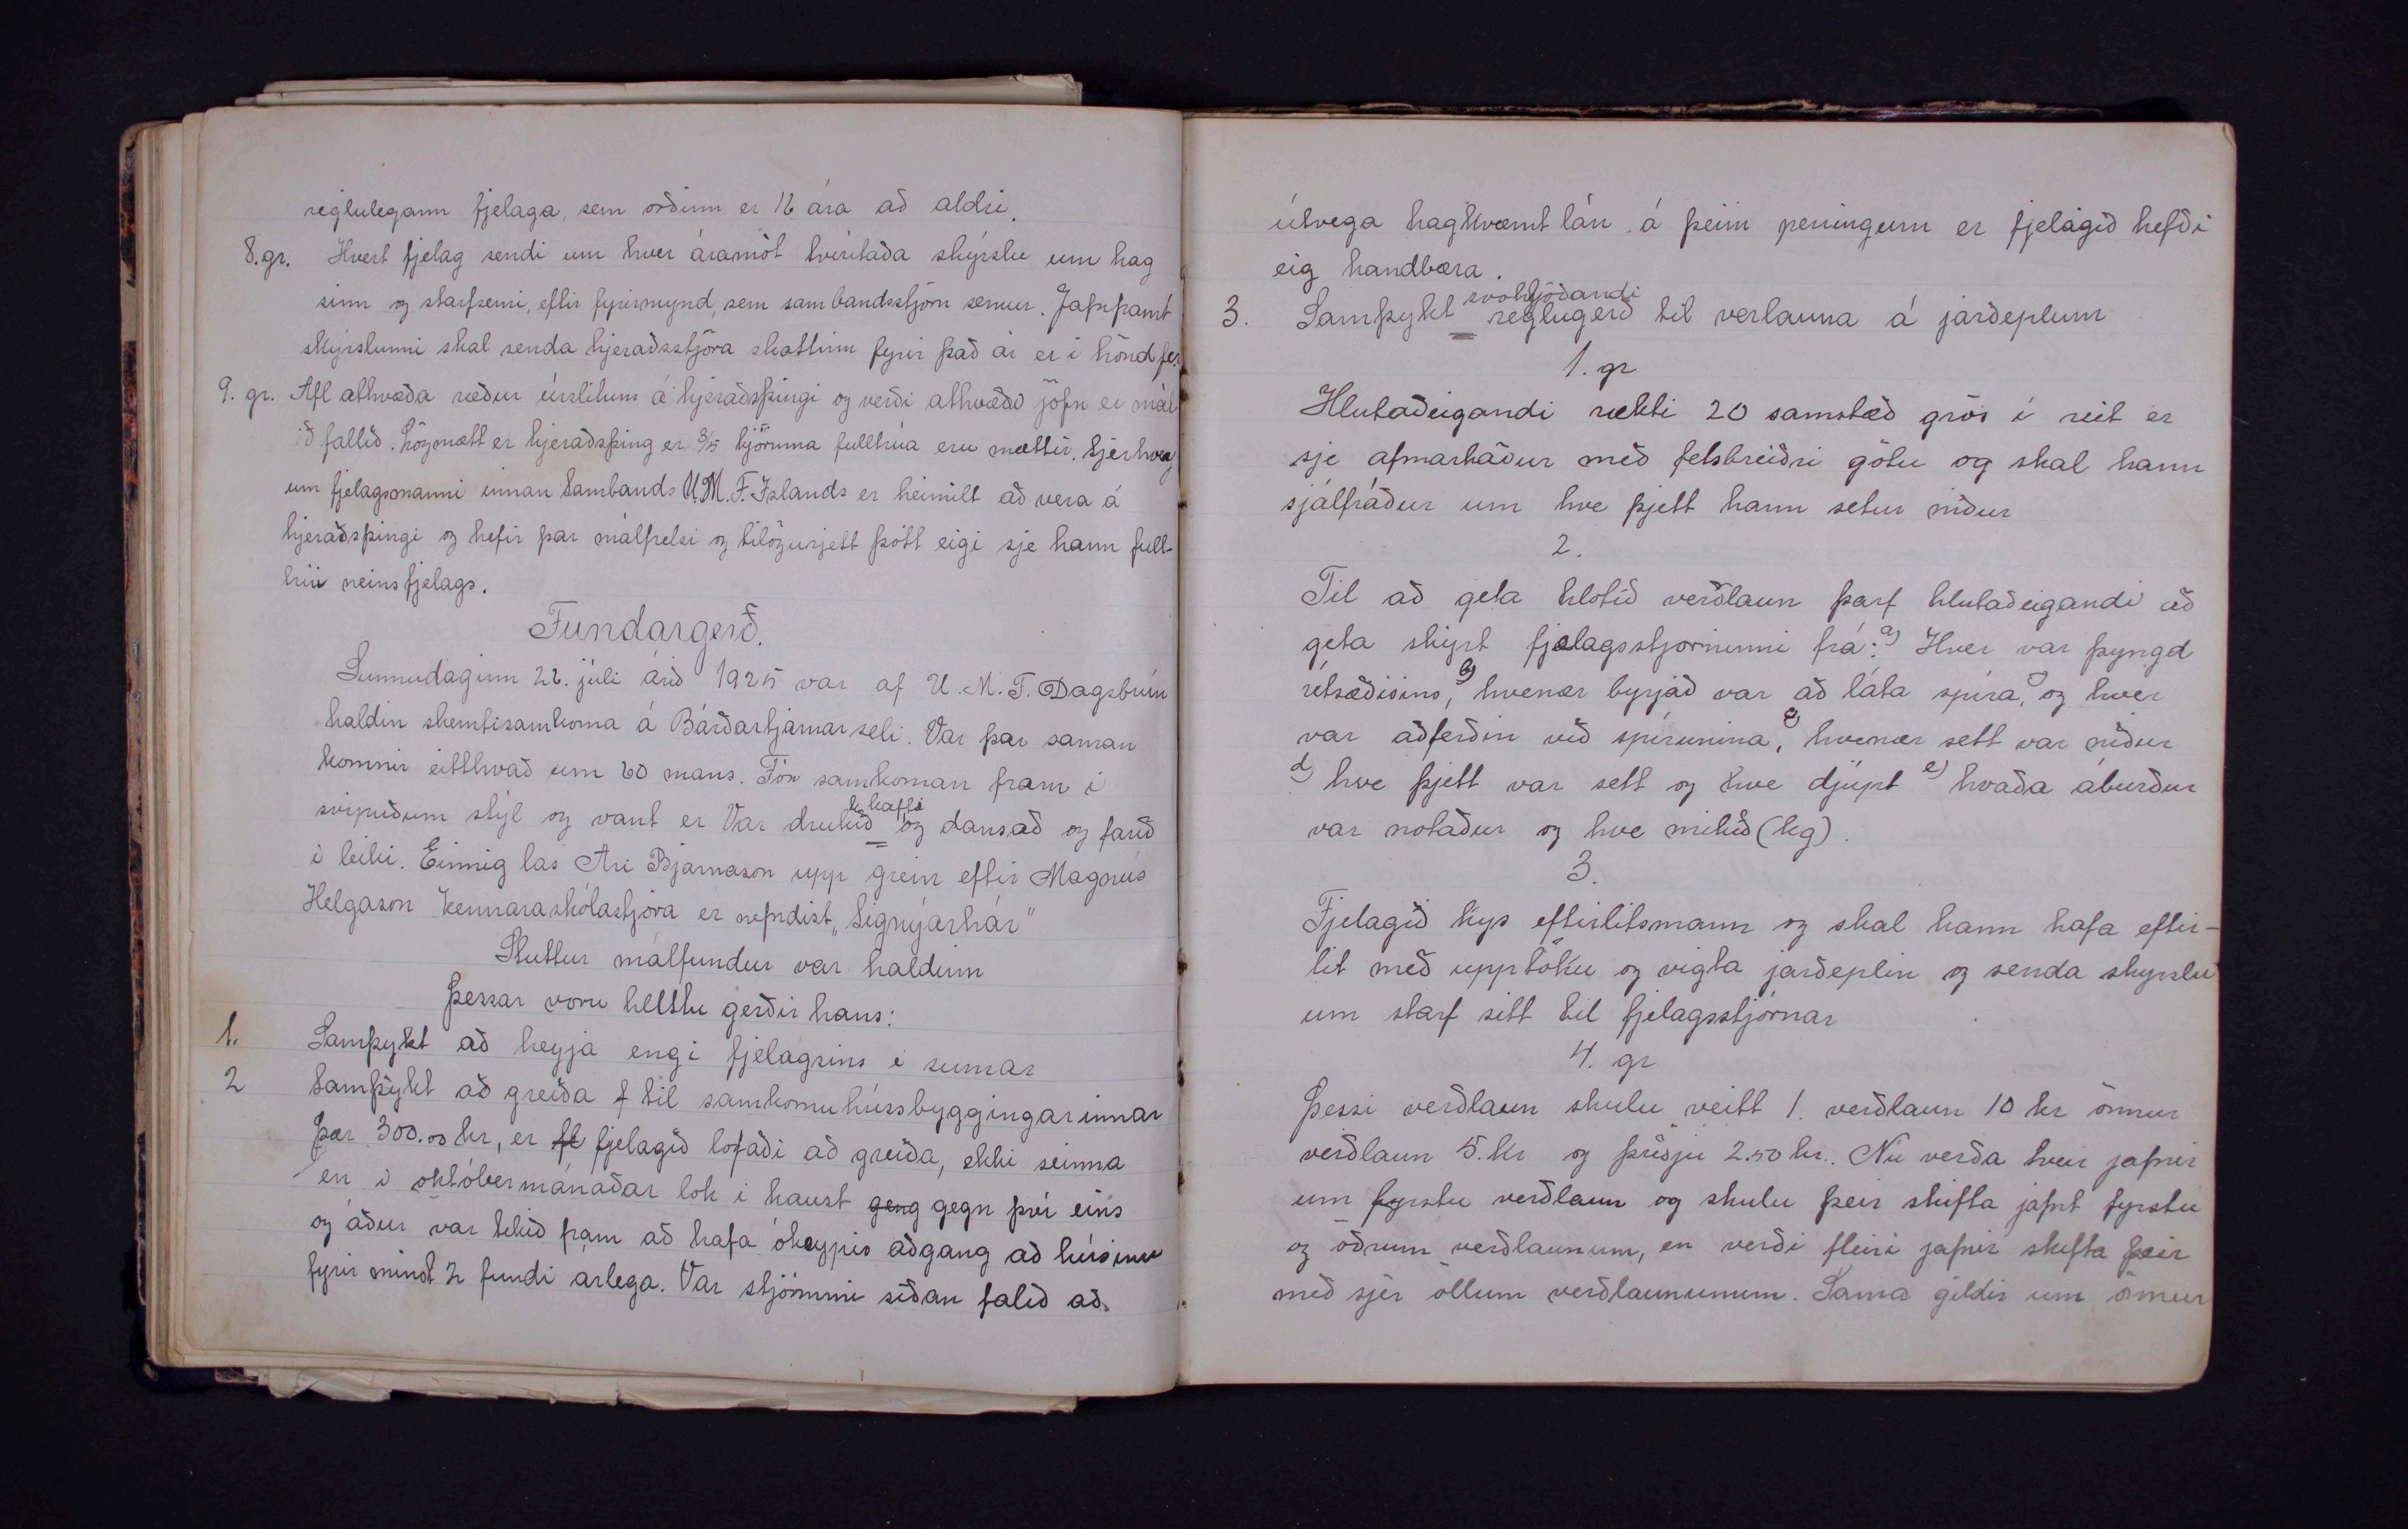 reglulegann fjelaga, sem orðinn er 16 ára að aldri.
8.gr. Hvert fjelag sendi um hver áramót hviritaða skýrslu um hag
sinn og starfsemi, eftir fyrirmynd, sem sambandsstjórn semur. Jafnframt
skýrslunni skal senda hjeraðsstjóra skattinn fyrir það ár er í hönd fer.
9. gr. Afl athvæða ræður úrslitum á hjeraðsþingi og verði athvæði jöfn er mál
ið fallið. Lögmætt er hjeraðsþing er 3/5 kjörinna fulltrúa eru mættir. Sjerhverj
um fjelagsmanni innan Sambands U.M.F. Íslands er heimilt að vera á
hjeraðsþingi og hefir þar málfrelsi og tilögurjett þótt eigi sje hann full-
trúi neins fjelags.
Fundargerð.
Sunnudaginn 22. júli árið 1925 var af U.M.F. Dagsbrún
haldin skemtisamkoma á Bárðartjarnarseli. Var þar saman
komnir eitthvað um 60 mans. Fór samkoman fram í
svipuðum stýl og vant er Var drukkið kaffi og dansað og farið
í leiki. Einnig las Ari Bjarnason upp grein eftir Magnús
Helgason Kennaraskólastjóra er nefndist „Signýarhár"
Stuttur málfundur var haldinn
Þessar voru helstu gerðir hans:
1. Samþykt að heyja engi fjelagsins í sumar
2 Samþykt að greiða f til samkomuhússbyggingarinnar
þær 300.00 kr, er fl fjelagið lofaði að greiða, ekki seinna
en í októbermánaðar lok í haust geng gegn því eins
og áður var tekið fram að hafa ókeypis aðgang að húsinu
fyrir minst 2 fundi árlega. Var stjórninni síðan falið að
útvega hagkvæmt lán á þeim peningum er fjelagið hefði
eig handbæra.
3. Samþykt svohljóðandi reglugerð til verlauna á jarðeplum
1. gr
Hlutaðeigandi rækti 20 samstæð grös í reit er
sje afmarkaður með fetsbreiðri götu og skal hann
sjálfráður um hve þjett hann setur niður
2.
Til að geta hlotið verðlaun þarf hlutaðeigandi að
geta skýrt fjelagsstjorninni frá: a) Hver var þyngd
útsæðisins, b) hvenær byrjað var að láta spíra, og hver
var aðferðin við spírunina, c) hvenær sett var niður
d) hve þjett var sett og hve djúpt e) hvaða áburður
var notaður og hve mikið (kg).
3.
Fjelagið kys eftirlitsmann og skal hann hafa eftir-
lit með upptöku og vigta jarðeplin og senda skyrslu
um starf sitt til fjelagsstjórnar
4. gr
Þessi verðlaun skulu veitt 1. verðlaun 10 kr önnur
verðlaun 5. kr og þriðju 2.50 kr.. Nú verða tveir jafnir
um fyrstu verðlaun og skulu þeir skifta jafnt fyrstu
og öðrum verðlaunum, en verði fleiri jafnir skifta þeir
með sjer öllum verðlaununum. Sama gildir um önnur